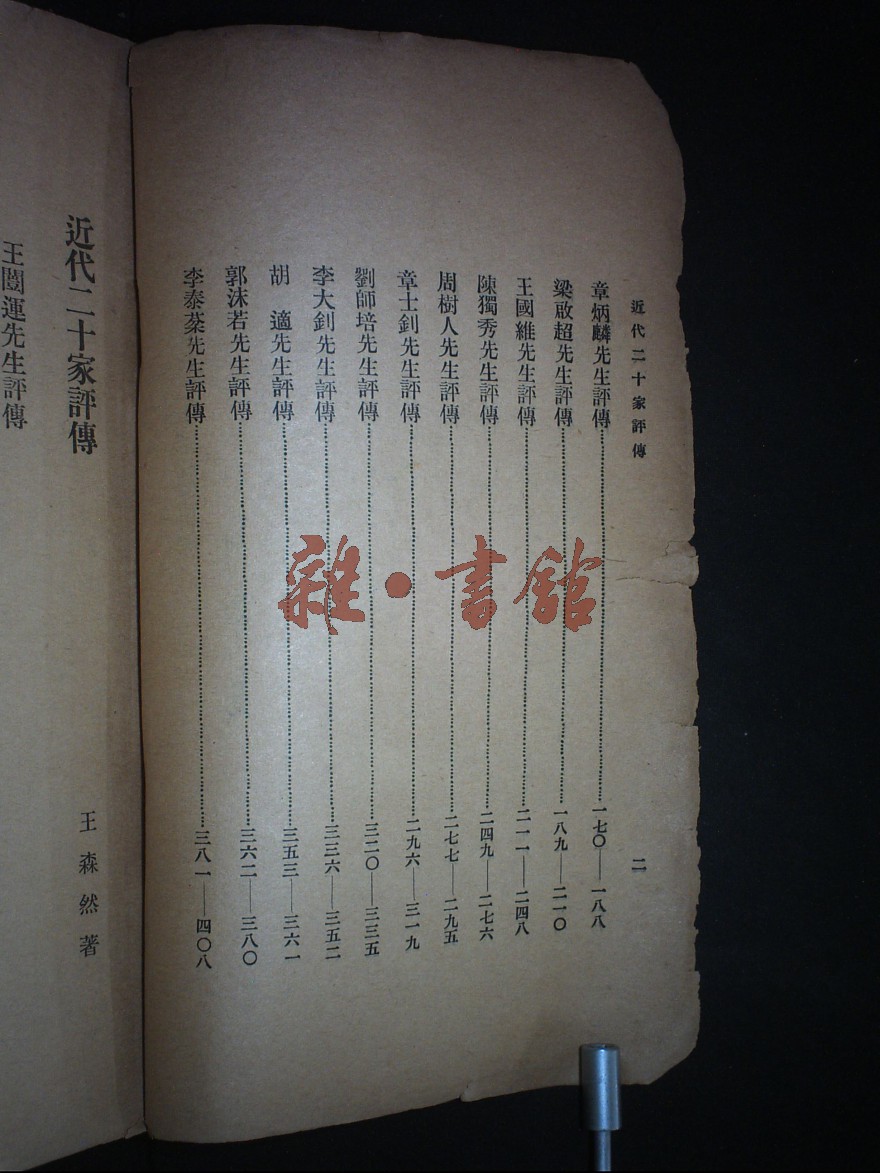 近代二十家評傳
二
章炳麟先生評傳……一七〇——一八八
梁啟超先生評傳……一八九——二一〇
王國維先生評傳……二一一——二四八
陳獨秀先生評傳……二四九——二七六
周樹人先生評傳……二七七——二九五
章士釗先生評傳……二九六——三一九
劉師培先生評傳……三二〇——三三五
李大釗先生評傳……三三六——三五二
胡　適先生評傳……三五三——三六一
郭沫若先生評傳……三六二——三八〇
李泰棻先生評傳……三八一——四〇八
近代二十家評傳
王森然著
王闓運先生評傳
雜·書館